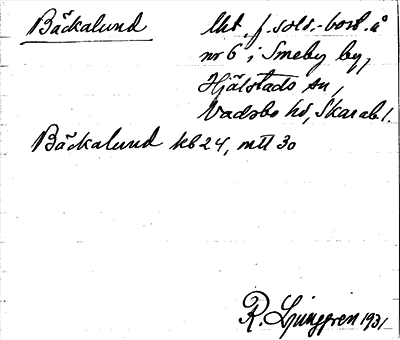 Bäckalund
Lht. f. sold.-bost. å
nr 6 i Smeby by,
Hjälstads sn,
Vadsbo hd, Skarabl.
Bäckalund kb 24, mtl 30
R. Ljunggren 1931